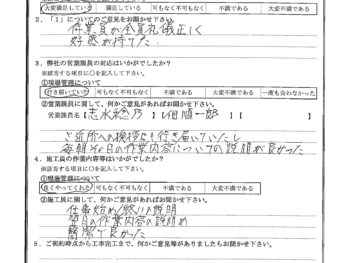 大変満足している 満足している 可もなく不可もなく 不満である 大変不満である
2.「1」についてのご意見をお聞かせ下さい。
作業員が全員礼儀正しく
好感が持てた。
3. 弊社の営業課員の対応はいかがでしたか?
※該当する項目に○を記入して下さい。
①現場管理について
行き届いていた 可もなく不可もなく 不満である 大変不満である 一度も会わなかった
②営業課員に関して、何かご意見があればお聞かせ下さい。
営業課員名【志水 乃】【 順一郎】【 】
ご近所への挨拶なども行き届いていたし
毎朝その日の作業内容についての説明が良かった
4. 施工員の作業内容等はいかがでしたか?
※該当する項目に○を記入して下さい。
①現場管理について
良くやってくれた 可もなく不可もなく 不満である 大変不満である
②施工員に関して、何かご意見があればお聞かせ下さい。
仕事始め/終いの説明
毎日の作業内容の説明め
簡潔で良かった
5. ご契約時点から工事完工まで、何かご意見等がありましたらお聞かせ下さい。